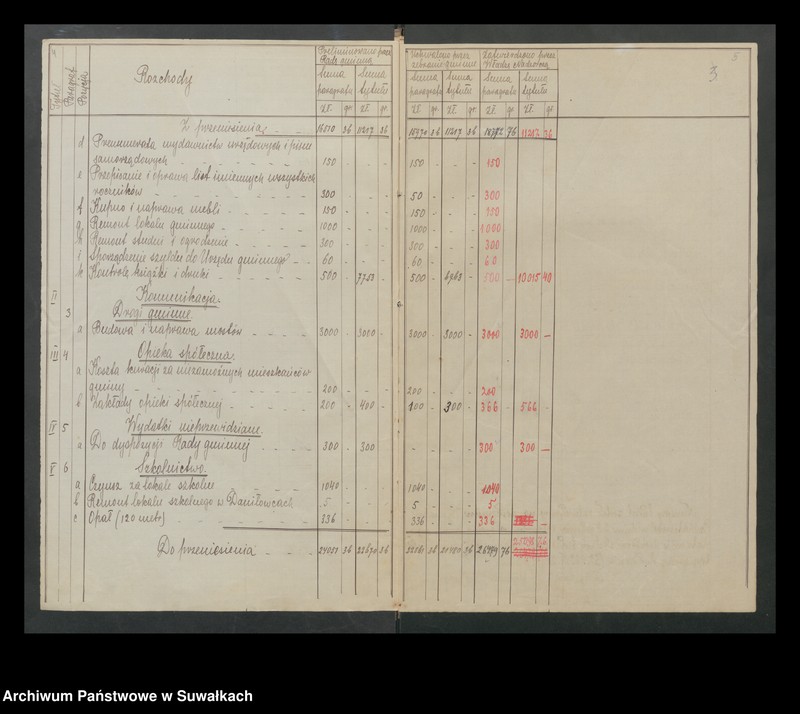 5
3
Tytuł Paragraf Pozycja Rozchody Preliminowano przez Radę gminną Uchwalono przez zebranie gminne Zatwierdzono przez Władzę nadzorczą
Suma paragrafu Suma tytułu Suma paragrafu Suma tytułu Suma paragrafu Suma tytułu
Zł. gr. Zł. gr. Zł. gr. Zł. gr. Zł. gr. Zł. gr.
Z przeniesienia 36 36 36 11207 36 76
d Prenumerata wydawnictw urzędowych i pism
samorządowych 150 - - - 150 - - - 150
e Przepisanie i oprawa list imiennych wszystkich
roczników 300 - - - 50 - - - 300
f Kupno i naprawa mebli 150 - - - 150 - - - 150
g Remont lokalu gminnego 1000 - - - 1000 - - - 1.000
h Remont studni i ogrodzenie 300 - - - 300 - - - 300
i Sporządzenie szyldu do Urzędu gminnego 60 - - - 60 - - - 60
k Kontrola książki i druki 500 - 7753 - 500 - 6963 - 500 - 10015 40
II Komunikacja.
3 Drogi gminne
a Budowa i naprawa mostów 3000 - 3000 - 3000 - 3000 - 3000 3000 -
III 4 Opieka społeczna.
a Koszta kuracji za niezamożnych mieszkańców
gminy 200 - - - 200 - - - 200
b Zakłady opieki społecznej 200 - 400 - 100 - 300 - 366 - 566 -
IV 5 Wydatki nieprzewidziane.
a Do dyspozycji Rady gminnej 300 - 300 - - - - 300 300 -
V 6 Szkolnictwo.
a Czynsz za lokale szkolne 1040 - - - 1040 - - - 1040
b Remont lokalu szkolnego w Daniłowcach 5 - - - 5 - - - 5
c Opał (120 metr) 336 - - - 336 - - - 336 -
Do przeniesienia 36 22670 36 36 36 76 76
Archiwum Państwowe w Suwałkach